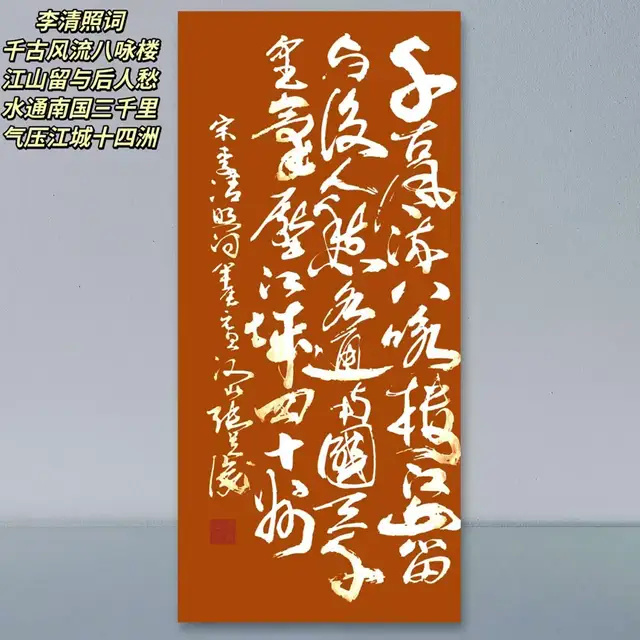 李清照词
千古风流八咏楼
江山留与后人愁
水通南国三千里
气压江城十四洲
千古風流八咏楼江山留
与後人愁水通南國三千
里氣壓江城四十州
宋李清照词